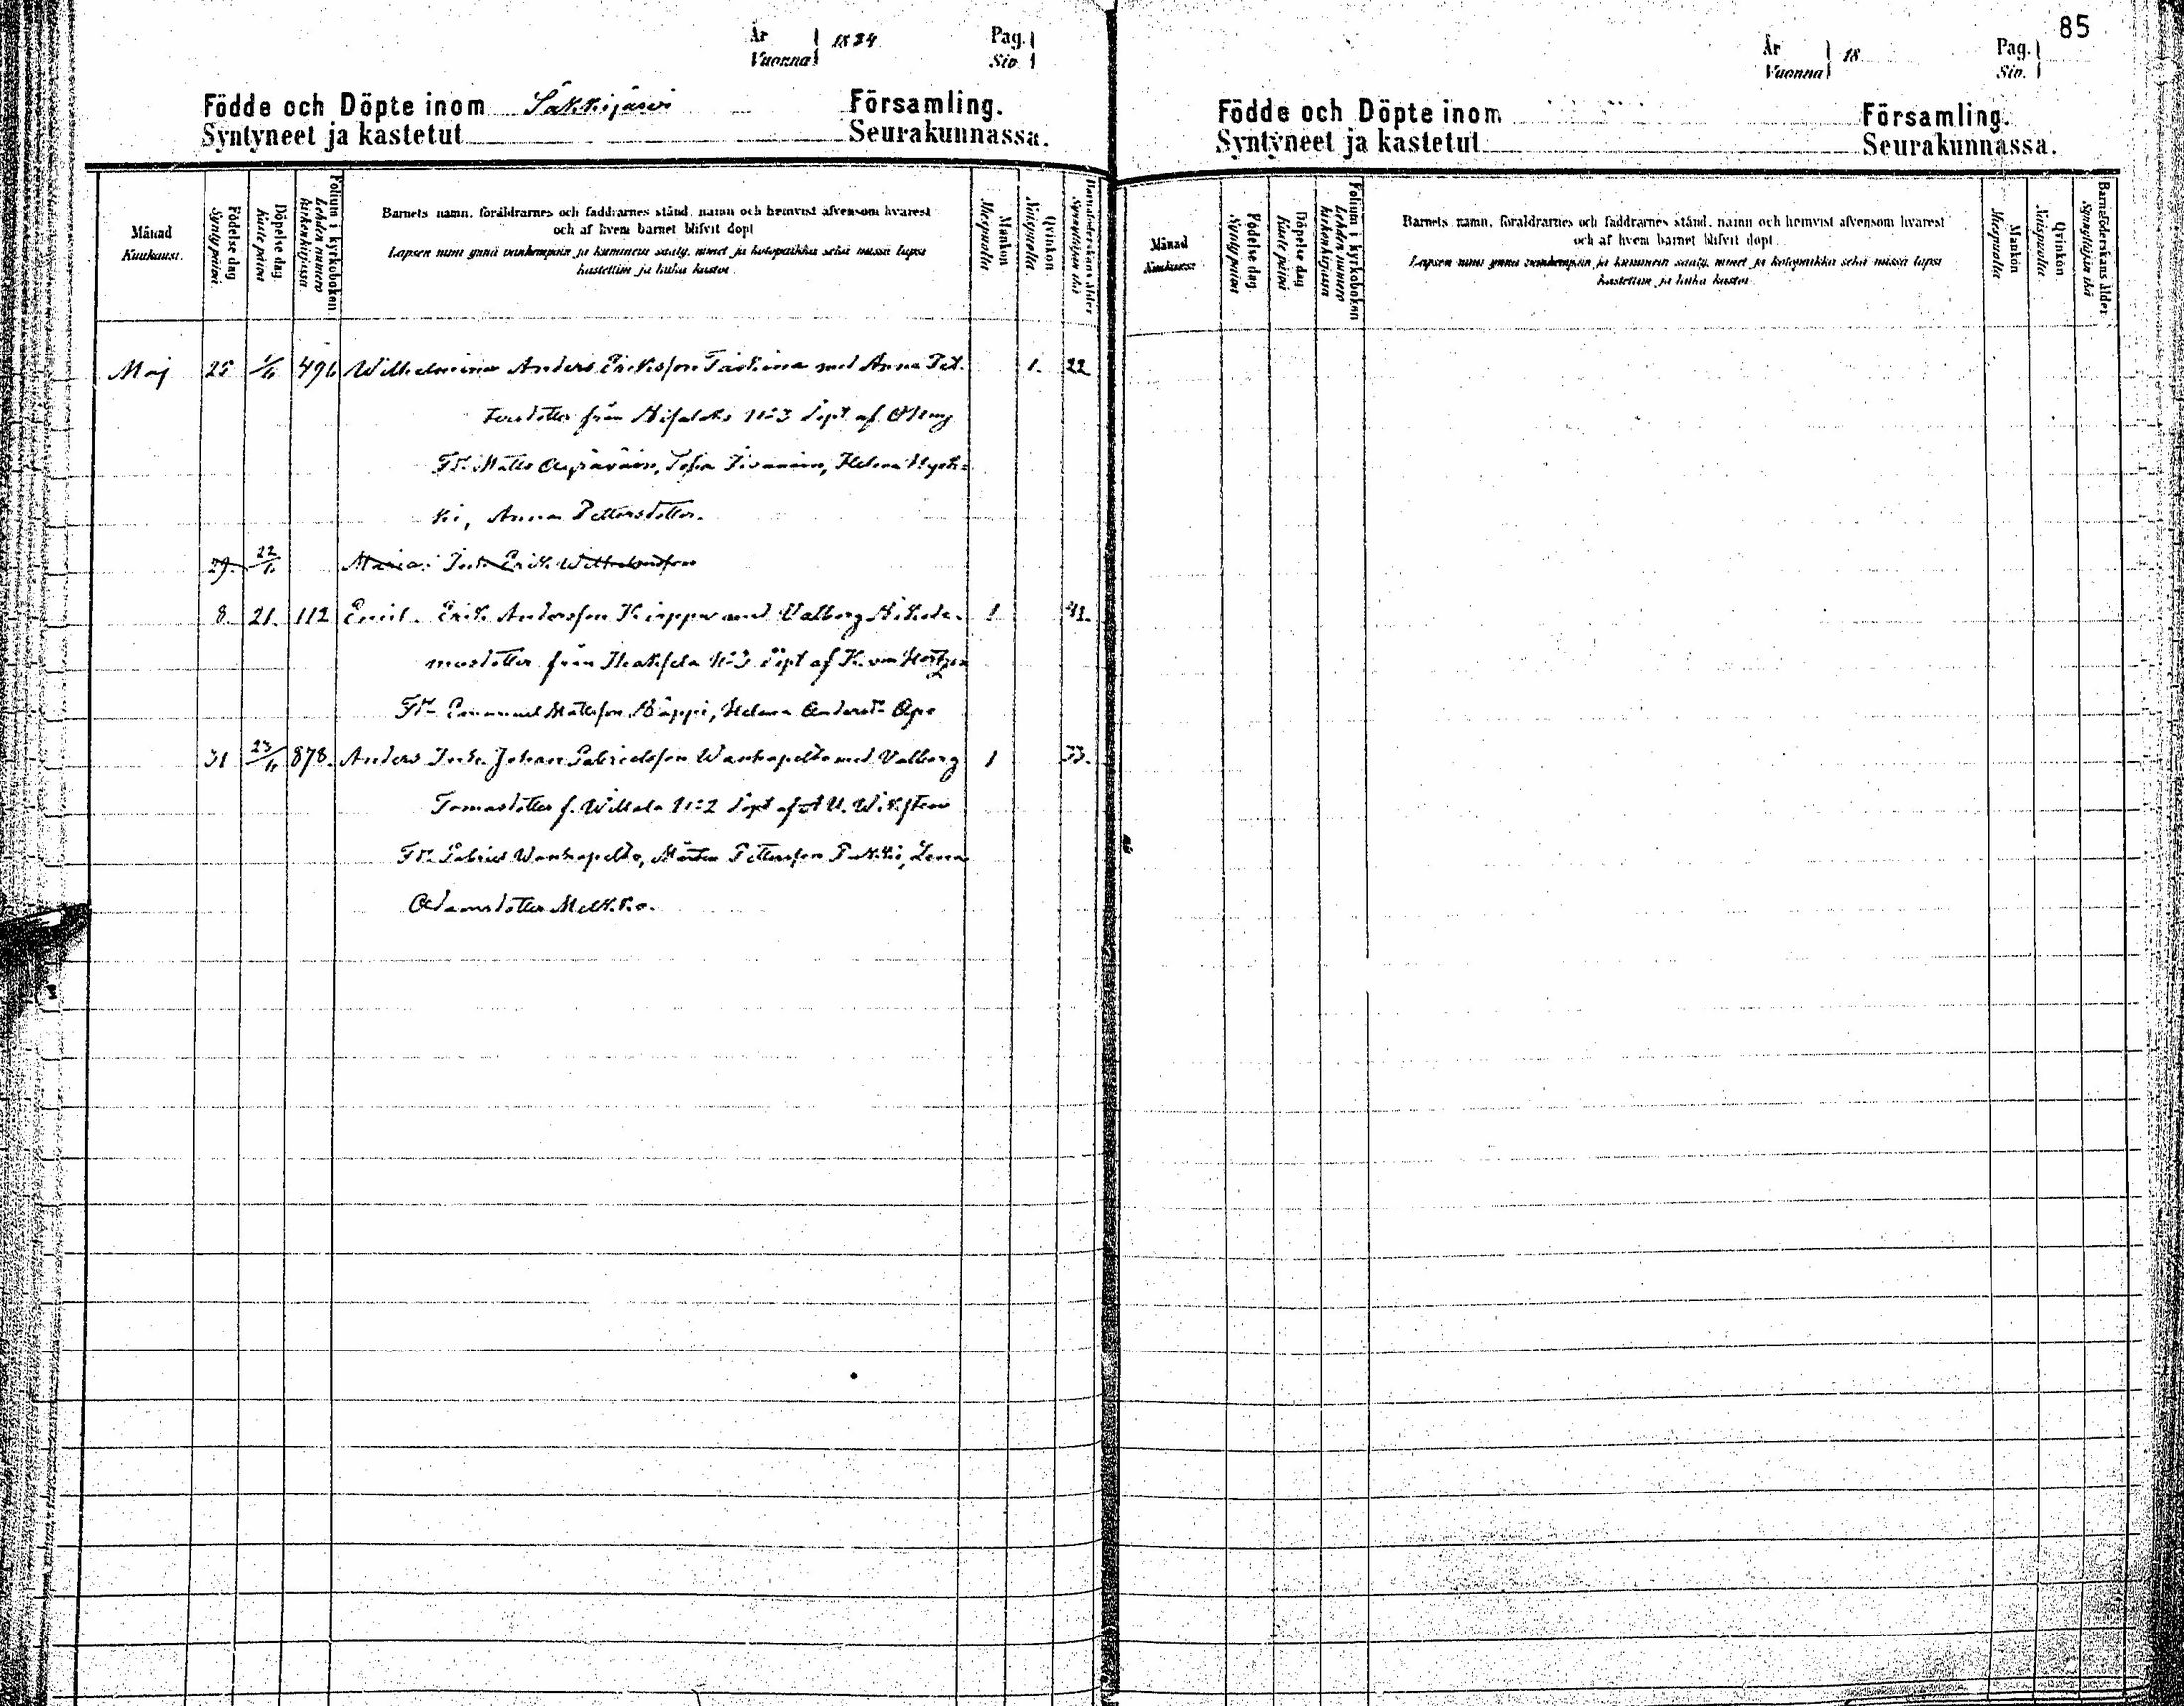 År
Vuonna
1884
Pag.
Siv.
Födde och Döpte inom Säkkijärvi Församling.
Syntyneet ja kastetut Seurakunnassa.
Månad
Kuukausi.
Födelse dag
Synty päivä
Döpelse dag
Kaste päivä
Folium i kyrkoboken
Lehden numero
kirkonkirjassa
Barnets namn, föräldrarnes och faddrarnes stånd, namn och hemvist äfvensom hvarest
och af hvem barnet blifvit döpt
Lapsen nimi ynnä vanhempain ja kummein sääty, nimet ja kotopaikka sekä missä lapsi
kastettiin ja kuka kastoi.
Mankön
Miespuolia
Qvinkön
Naispuolia
Barnaföderskans ålder
Synnyttäjän ikä
Maj 25 1/6 496 Wilhelmina Anders Eriksson med Anna Pet- 1. 22
tersdotter från N:o 3 döpt af
Fr: Matts Sofia Helena
ki, Anna Pettersdotter.
29. 22/6 Maria: Inh. Erik
8. 21. 112 Emil. Erik Andersson Kieppa med Valborg Nikode- 1 41.
musdotter från N:o 3 döpt af K. von Hertzen
Fr: Emanuel Mattsson Helena Andersdr Apo
31 23/6 878. Anders Inh. Johan Gabrielsson Wanhapelto med Valborg 1 33.
Tomasdotter f. Willala N:o 2 döpt af A U. Wiksten
Fr: Gabriel Wanhapelto, Mårten Pettersson Pukki, Lena
Adamsdotter Melkko.
85
År
Vuonna
18
Pag.
Siv.
Födde och Döpte inom Församling.
Syntyneet ja kastetut Seurakunnassa.
Månad
Kuukausi
Födelse dag
Synty päivä
Döpelse dag
Kaste päivä
Folium i kyrkoboken
Lehden numero
kirkonkirjassa
Barnets namn, föräldrarnes och faddrarnes stånd, namn och hemvist äfvensom hvarest
och af hvem barnet blifvit döpt.
Lapsen nimi ynnä vanhempain ja kummein sääty, nimet ja kotopaikka sekä missä lapsi
kastettiin ja kuka kastoi
Mankön
Miespuolia
Qvinkön
Naispuolia
Barnaföderskans ålder
Synnyttäjän ikä